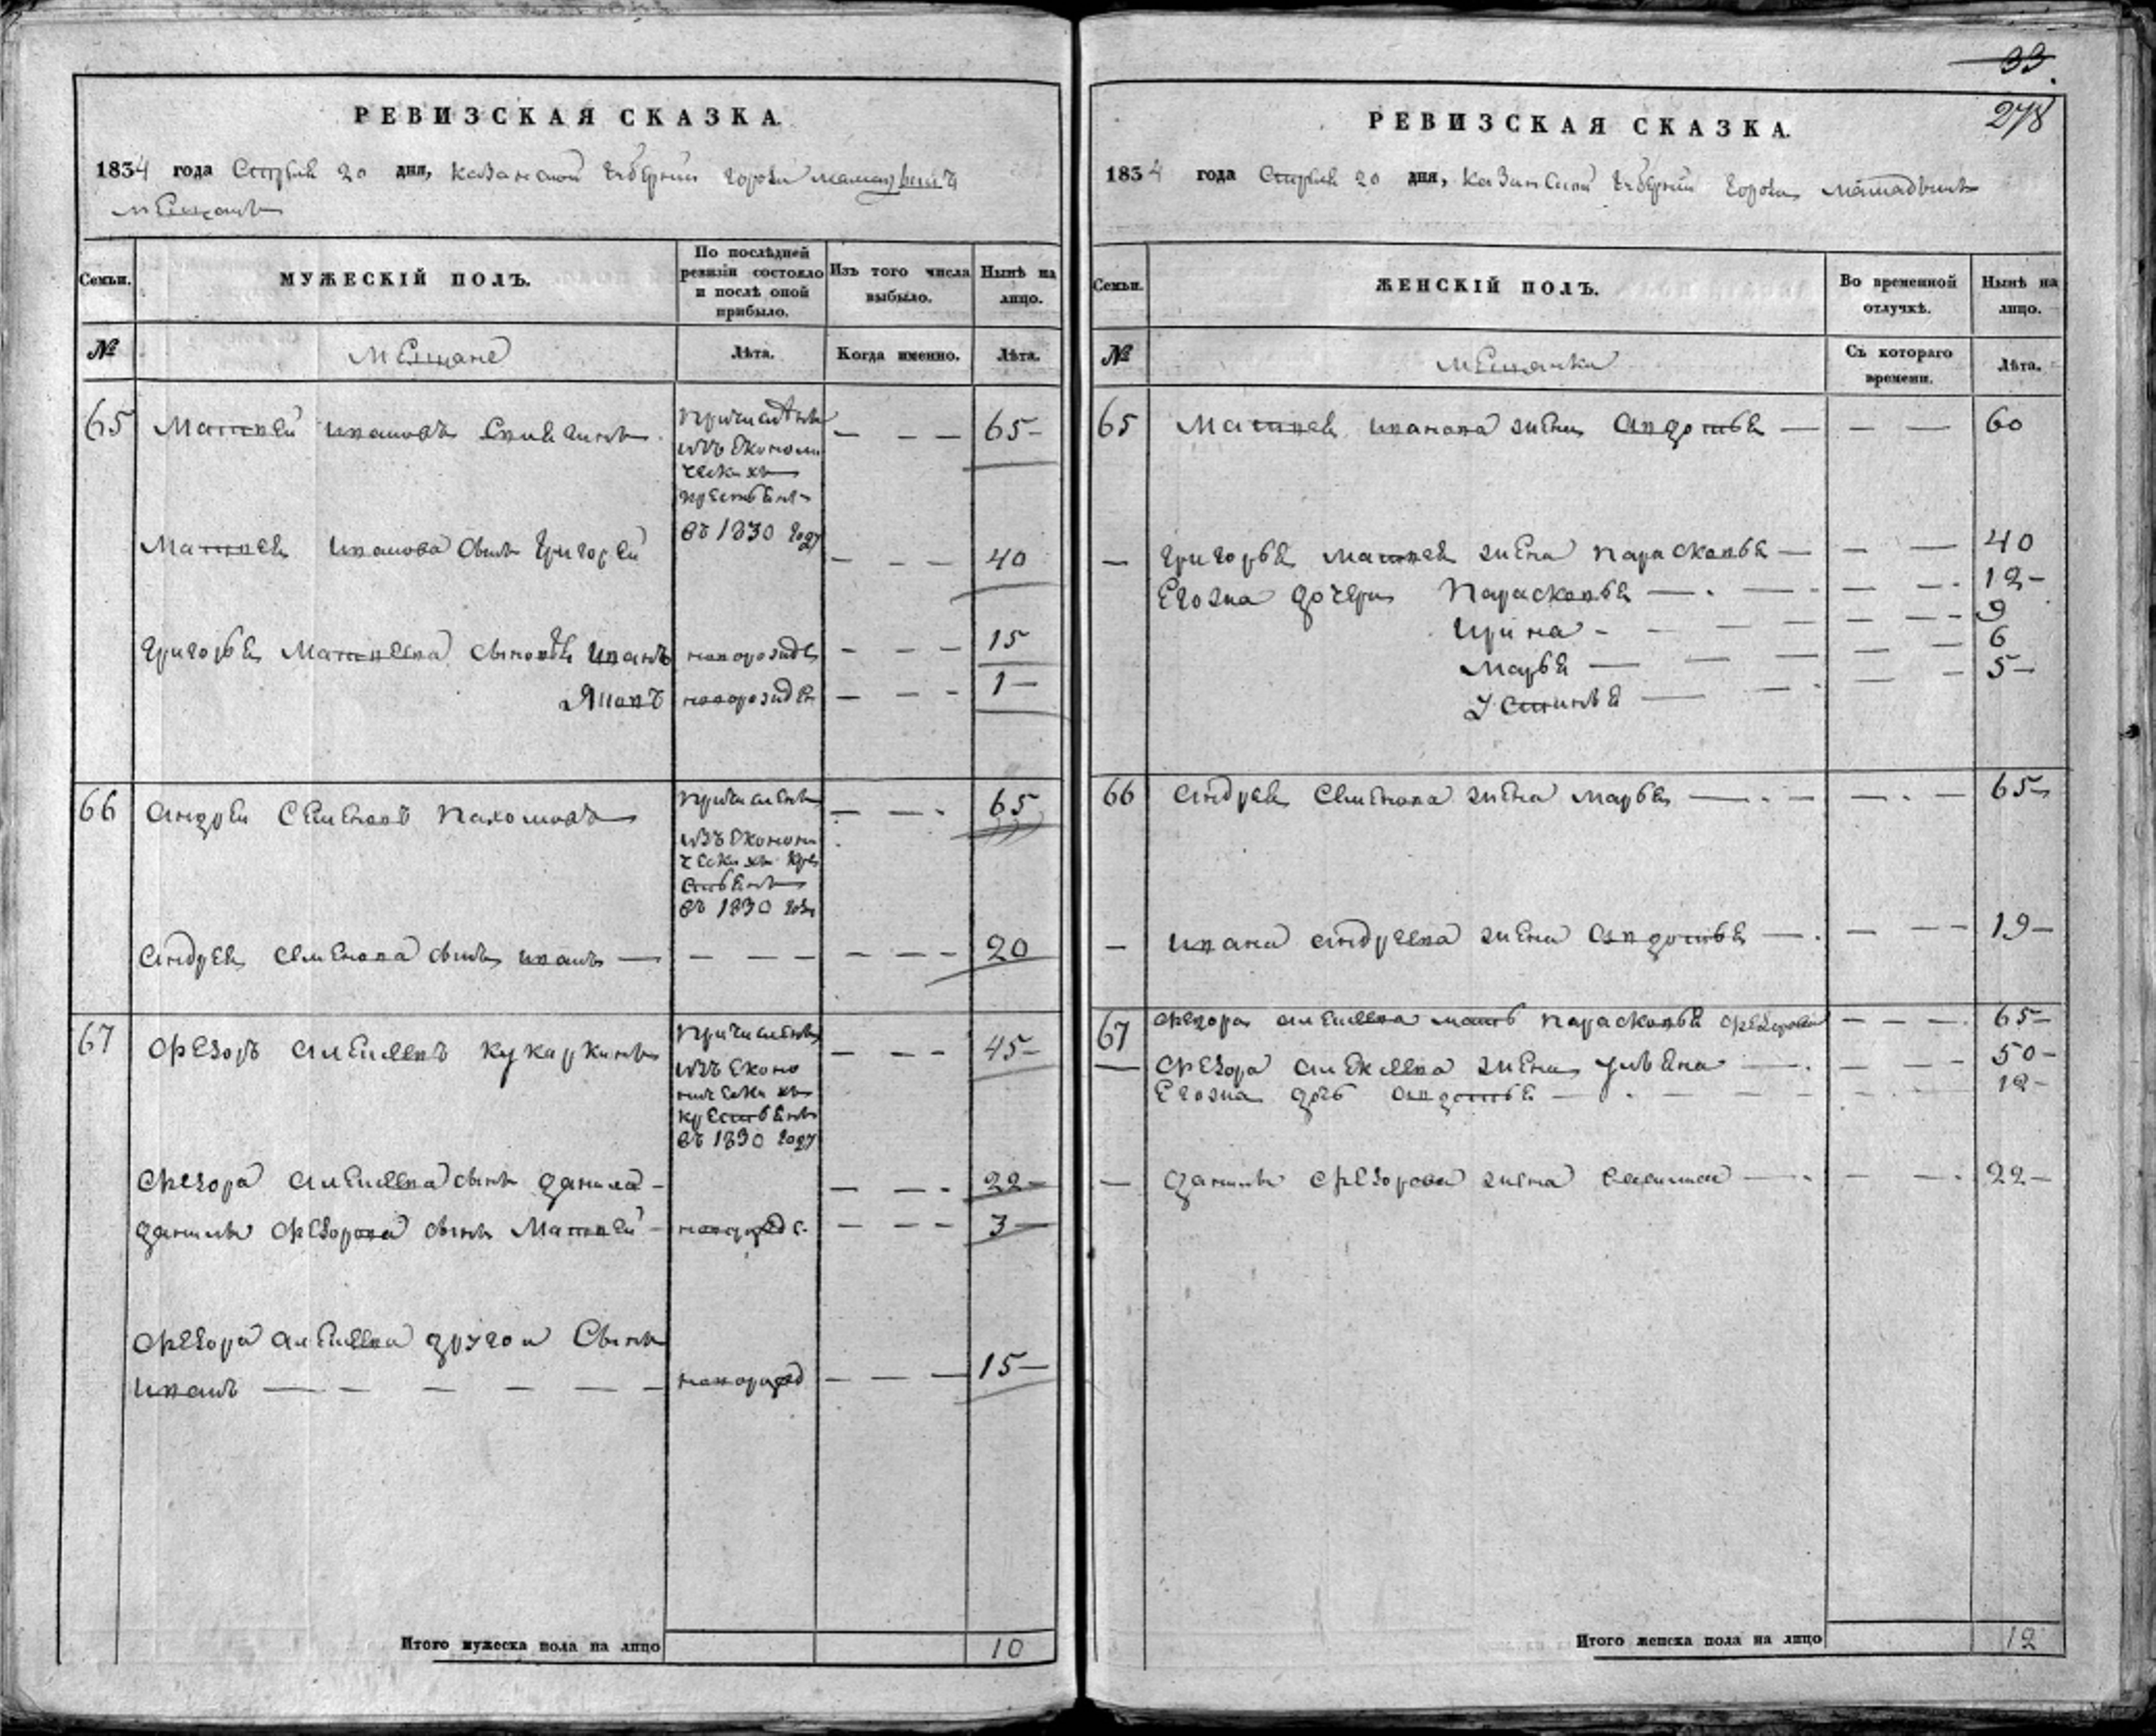 РЕВИЗСКАЯ СКАЗКА.
1834 года Апреля 20 дня, Казанской губернии города Мамадыша
мещанъ
Семьи.
МУЖЕСКІЙ ПОЛЪ.
По послѣдней ревизіи состояло и послѣ оной прибыло.
Изъ того числа выбыло.
Нынѣ на лицо.
№
Мещане
Лѣта.
Когда именно.
Лѣта.
65 Матвей Ивановъ причисленъ — — — 65
изъ Экономи
ческихъ
крестьянъ
въ 1830 году
Матвея Иванова сынъ Григорей — — — 40
Григорья Матвеева сыновья Иванъ новорожде — — — 15
Яковъ новорожден — — — 1
66 Андрей Семеновъ Пахомовъ причисленъ — — — 65
изъ Экономи
ческихъ кре
стьянъ
въ 1830 году
Андрея Семенова сынъ Иванъ — — — — — — 20
67 Федоръ Алексеевъ Кукаркинъ причисленъ — — — 45
изъ Эконо
мическихъ
крестьянъ
въ 1830 году
Федора Алексеева сынъ Данила — — — 22
Данилы Федорова сынъ Матвей — — — 3
Федора Алексеева другой сынъ
Иванъ — — — — — — новорожд — — — 15
Итого мужеска пола на лицо 10
33.
278
РЕВИЗСКАЯ СКАЗКА.
1834 года Апреля 20 дня, Казанской губернии города Мамадыша
Семьи.
ЖЕНСКІЙ ПОЛЪ.
Во временной отлучкѣ.
Нынѣ на лицо.
№
Мещанки
Съ котораго времени.
Лѣта.
65 Матвея Иванова жена Авдотья — — — 60
— Григорья Матвеева жена Парасковья — — — 40
Егожа дочери Парасковья — — — 12
Ирина — — — 9
Марья — — — 6
Устинья — — — 5
66 Андрея Семенова жена Марья — — — 65
— Ивана Андреева жена Авдотья — — — 19
67 Федора Алексеева мать Парасковья Федорова — — — 65
— Федора Алексеева жена Ульяна — — — 50
Егожа дочь Авдотья — — — 12
— Данилы Федорова жена — — — 22
Итого женска пола на лицо 12